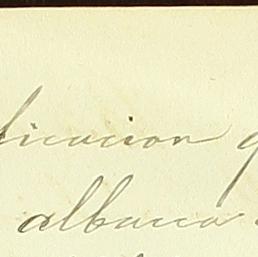 licacion q
albacea